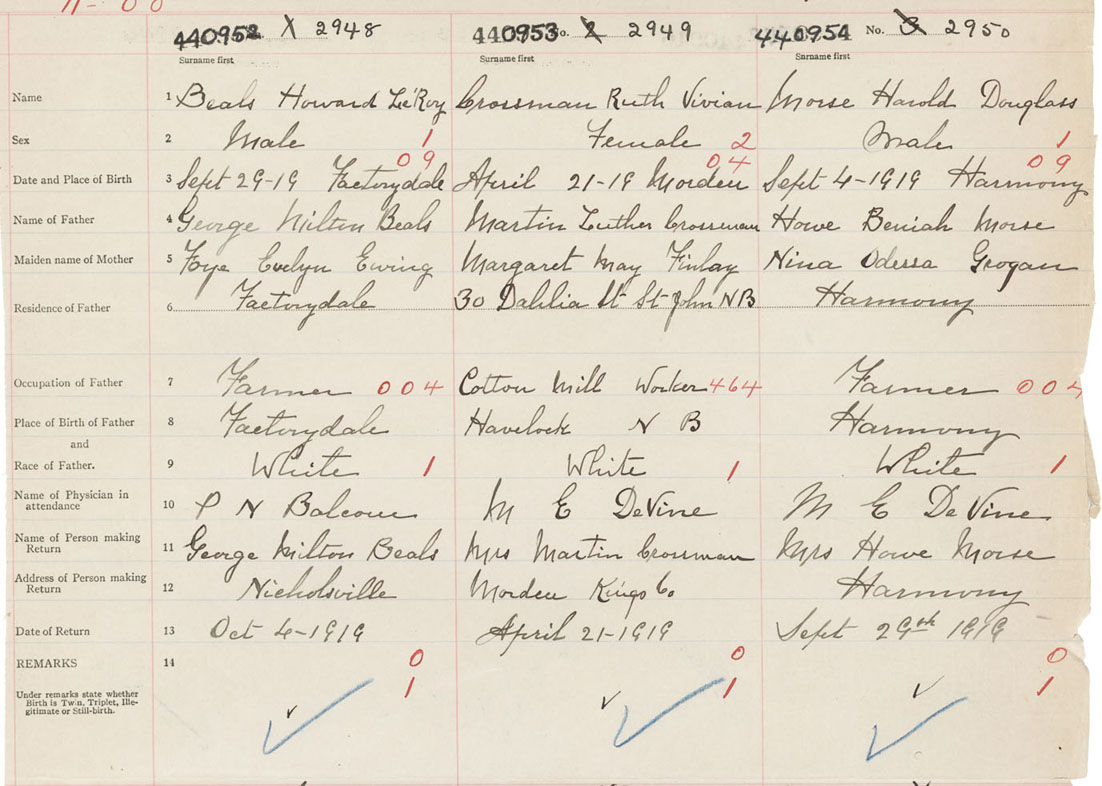 11-00
440952 X 2948 440953 No. 2 2949 440954 No. 3 2950
Surname first Surname first Surname first
Name 1 Beals Howard Le'Roy Crossman Ruth Vivian Morse Harold Douglass
Sex 2 Male 1 Female 2 Male 1
09 04 09
Date and Place of Birth 3 Sept 29-19 Factorydale April 21-19 Morden Sept 4-1919 Harmony
Name of Father 4 George Milton Beals Martin Luther Crossman Howe Beniah Morse
Maiden name of Mother 5 Foye Evelyn Ewing Margaret May Finlay Nina Odessa Grogan
Residence of Father 6 Factorydale 30 Dahlia St St John N B Harmony
Occupation of Father 7 Farmer 004 Cotton Mill Worker 464 Farmer 004
Place of Birth of Father 8 Factorydale Havelock N B Harmony
and
Race of Father. 9 White 1 White 1 White 1
Name of Physician in
attendance 10 P N Balcom M E DeVine M E DeVine
Name of Person making
Return 11 George Milton Beals Mrs Martin Crossman Mrs Howe Morse
Address of Person making
Return 12 Nicholsville Morden Kings Co Harmony
Date of Return 13 Oct 4-1919 April 21-1919 Sept 29th 1919
REMARKS 14 0 0 0
Under remarks state whether 1 1 1
Birth is Twin, Triplet, Ille-
gitimate or Still-birth.